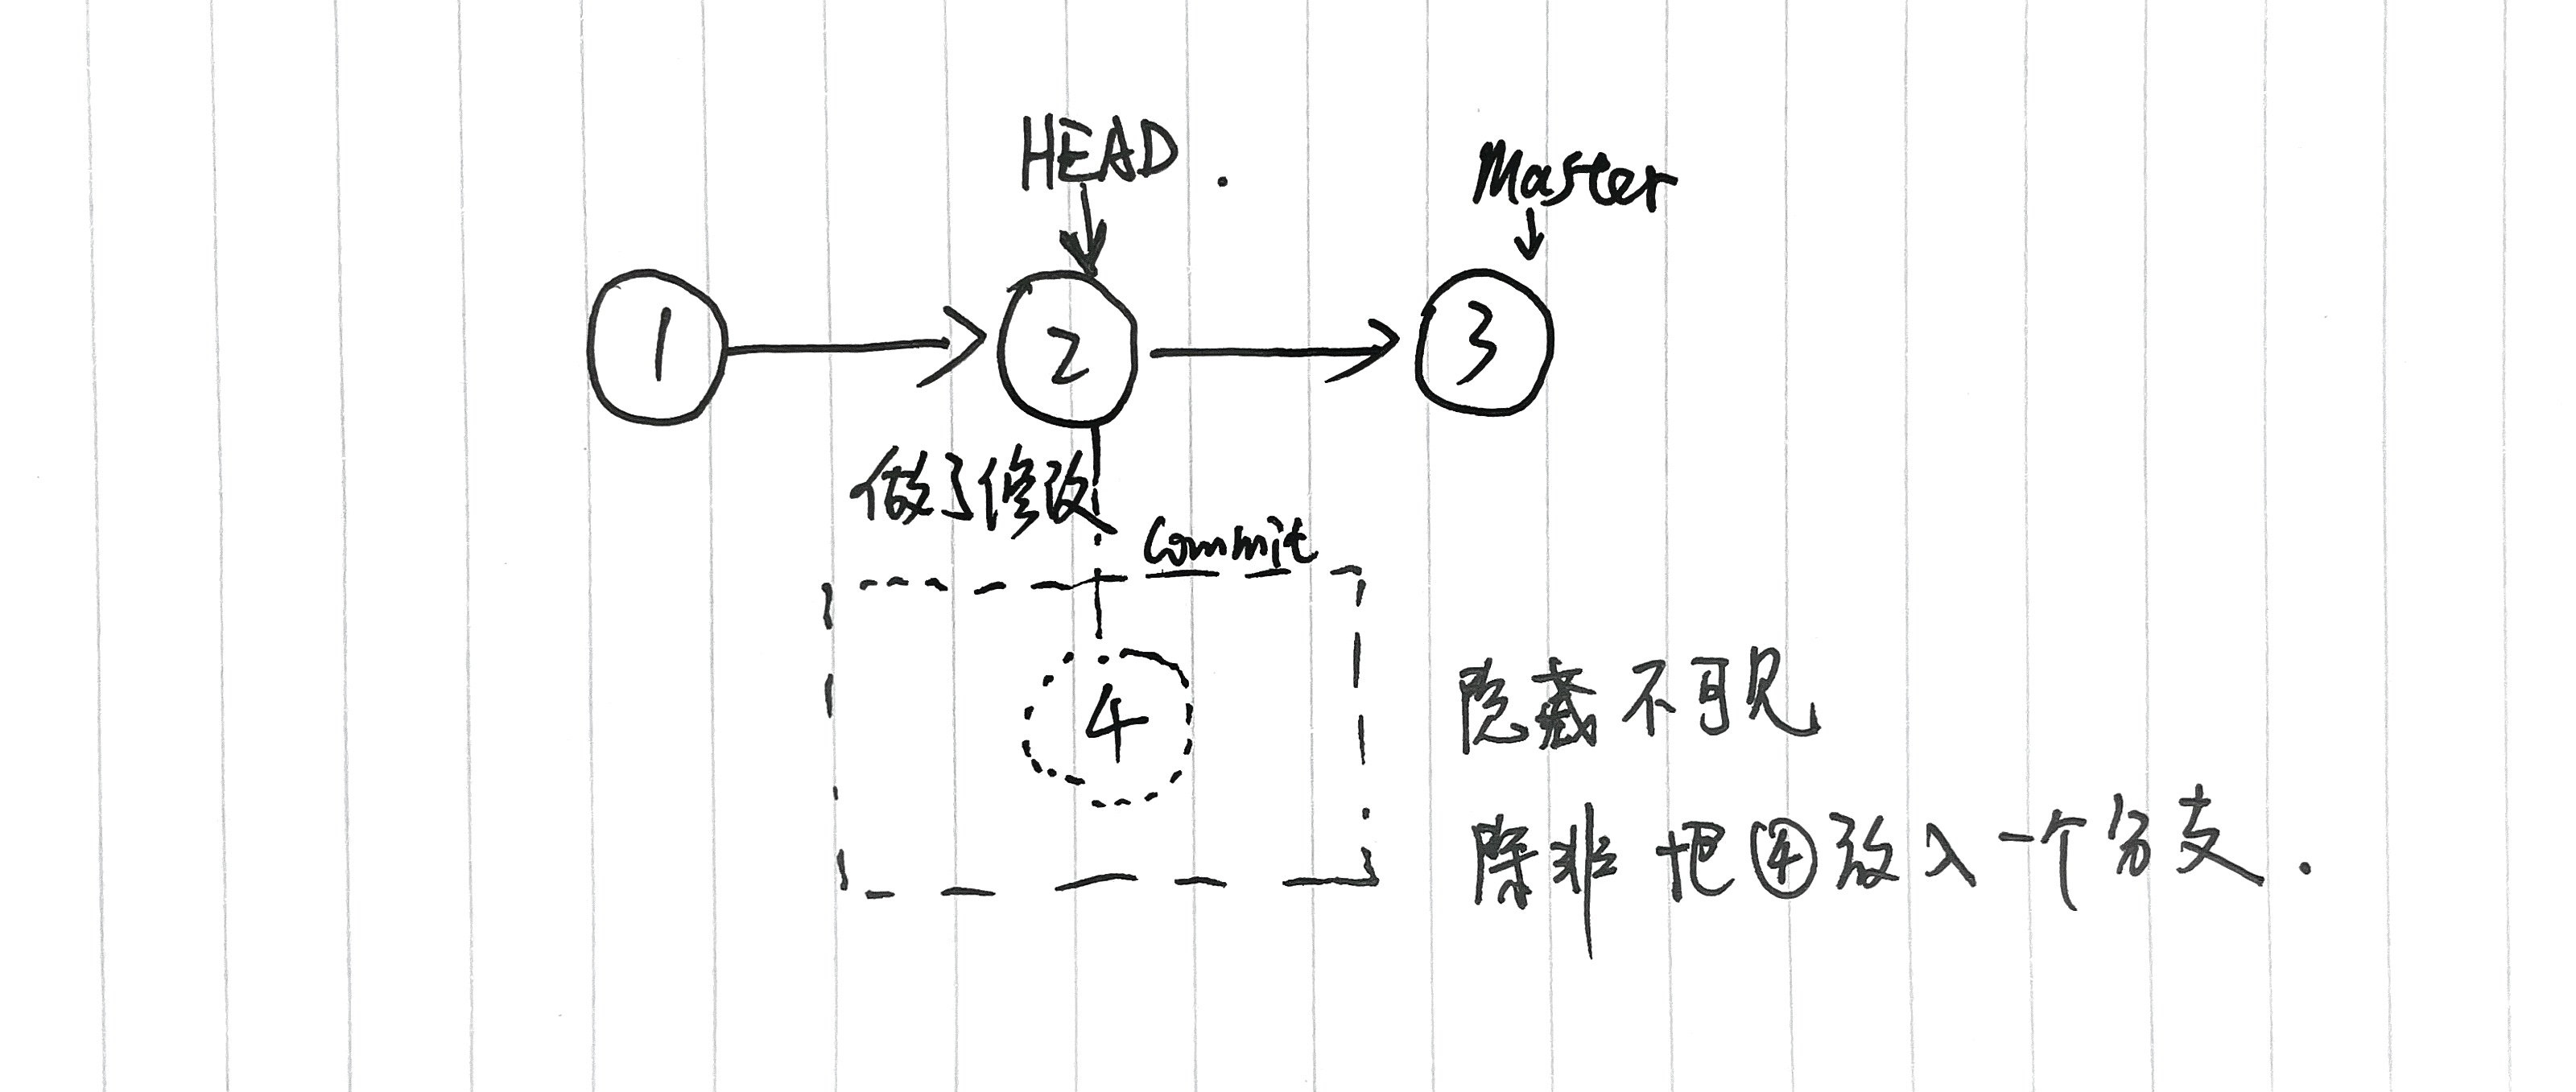 HEAD.
Master
1
2
3
做了修改
Commit
4
隐藏不可见
除非把④放入一个分支.